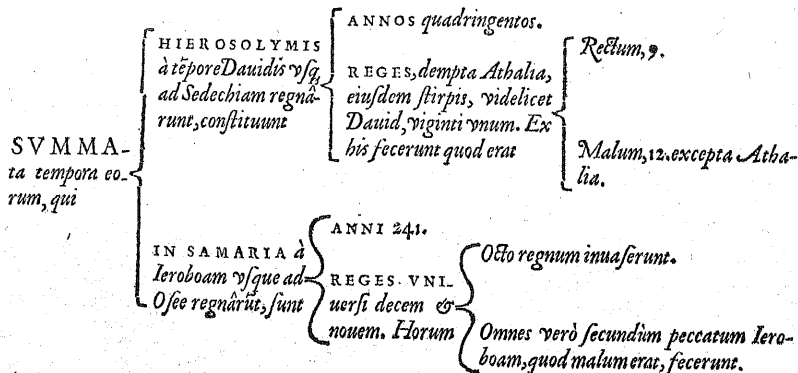 SVMMA-
ta tempora eo-
rum, qui
HIEROSOLYMIS
à tēpore Dauidis vſq;
ad Sedechiam regnâ-
runt, conſtituunt
ANNOS quadringentos.
REGES, dempta Athalia,
eiuſdem ſtirpis, videlicet
Dauid, viginti vnum. Ex
his fecerunt quod erat
Rectum, 9.
Malum, 12. excepta Atha-
lia.
IN SAMARIA à
Ieroboam vſque ad
Oſee regnârūt, ſunt
ANNI 241.
REGES VNI-
uerſi decem &
nouem. Horum
Octo regnum inuaſerunt.
Omnes verò ſecundùm peccatum Iero-
boam, quod malum erat, fecerunt.